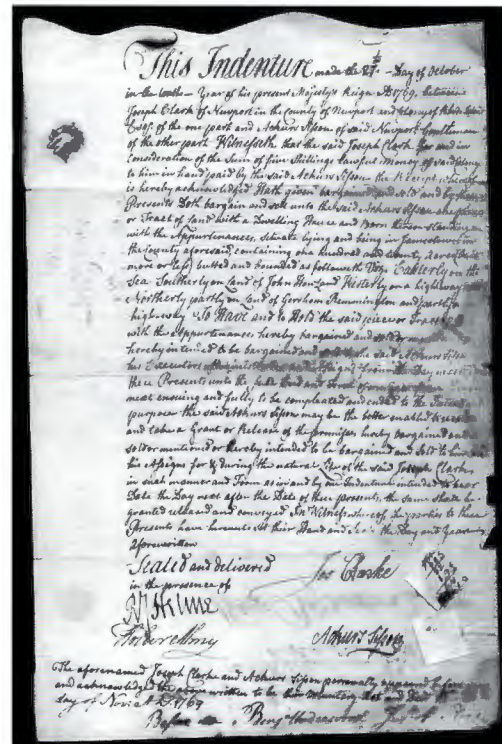 This Indenture made the 27th Day of October
in the tenth Year of his present Majestys Reign AD 1769 Between
Joseph Clark of Newport in the County of Newport and Colony of Rhode Island
Esqr. of the one part and Achurs Sisson of said Newport Gentleman
of the other part Witnesseth that the said Joseph Clark for and in
Consideration of the Sum of five Shillings lawful Money of said Colony
to him in hand paid by the said Achurs Sisson the Receipt whereof
is hereby acknowledged Hath given bargained and sold and by these
Presents Doth bargain and sell unto the said Achurs Sisson a
or Tract of Land with a Dwelling House and Barn thereon standing
with the Appurtinances, scituate lying and being in Jamestown in
the County aforesaid, containing one hundred and twenty Acres
more or less, butted and bounded as followeth Viz Easterly on the
Sea Southerly on Land of John Westerly on a highway
Northerly partly on Land of Gershom Remmington and partly
highway To Have and to Hold the said piece or Tract
with the appurtinances hereby bargained and sold or
hereby intended to be bargained and sold the said Achurs Sisson
his Executors from the Day next
these Presents unto the full End and Term of one year
next ensuing and fully to be compleated and ended to the Intent
purpose the said Achurs Sisson may be the better enabled to
and take a Grant or Release of the premisses hereby bargained and
sold or mentioned or hereby intended to be bargained and sold to him
his Assigns for & during the natural Life of the said Joseph Clarke
in such manner and Form as in and by one Indenture intended to bear
Date the Day next after the Date of these presents, the same shall be
granted released and conveyed In Witness whereof the parties to these
Presents have hereunto set their Hand and the Day and Year
aforewritten
Sealed and delivered
in the presence of
Jos Clarke
Achurs Sisson
The aforenamed Joseph Clarke and Achurs Sisson personally appeared before
and acknowledged the above written to be their voluntary Act and
Day of Nov A.D. 1769
Before me